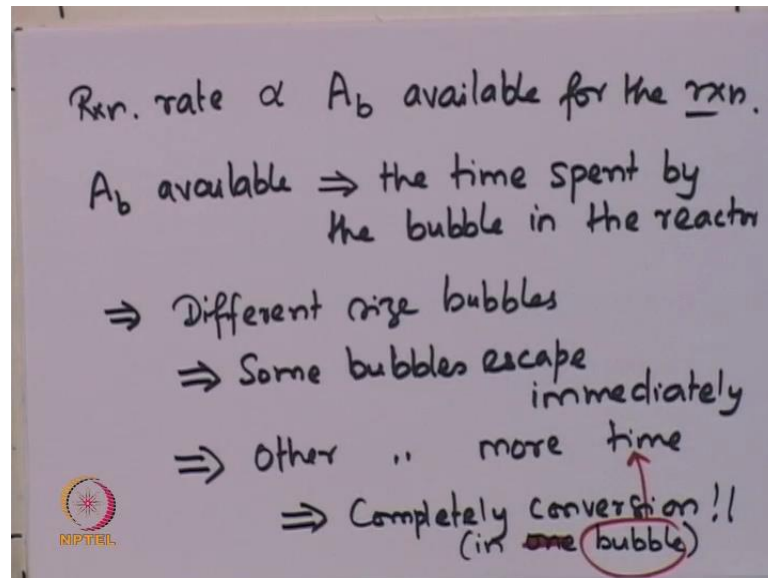 Rxn. rate α A_b available for the rxn.
A_b available ⇒ the time spent by
the bubble in the reactor
⇒ Different size bubbles
⇒ Some bubbles escape
immediately
⇒ Other " more time
⇒ Completely conversion!!
(in bubble)
NPTEL